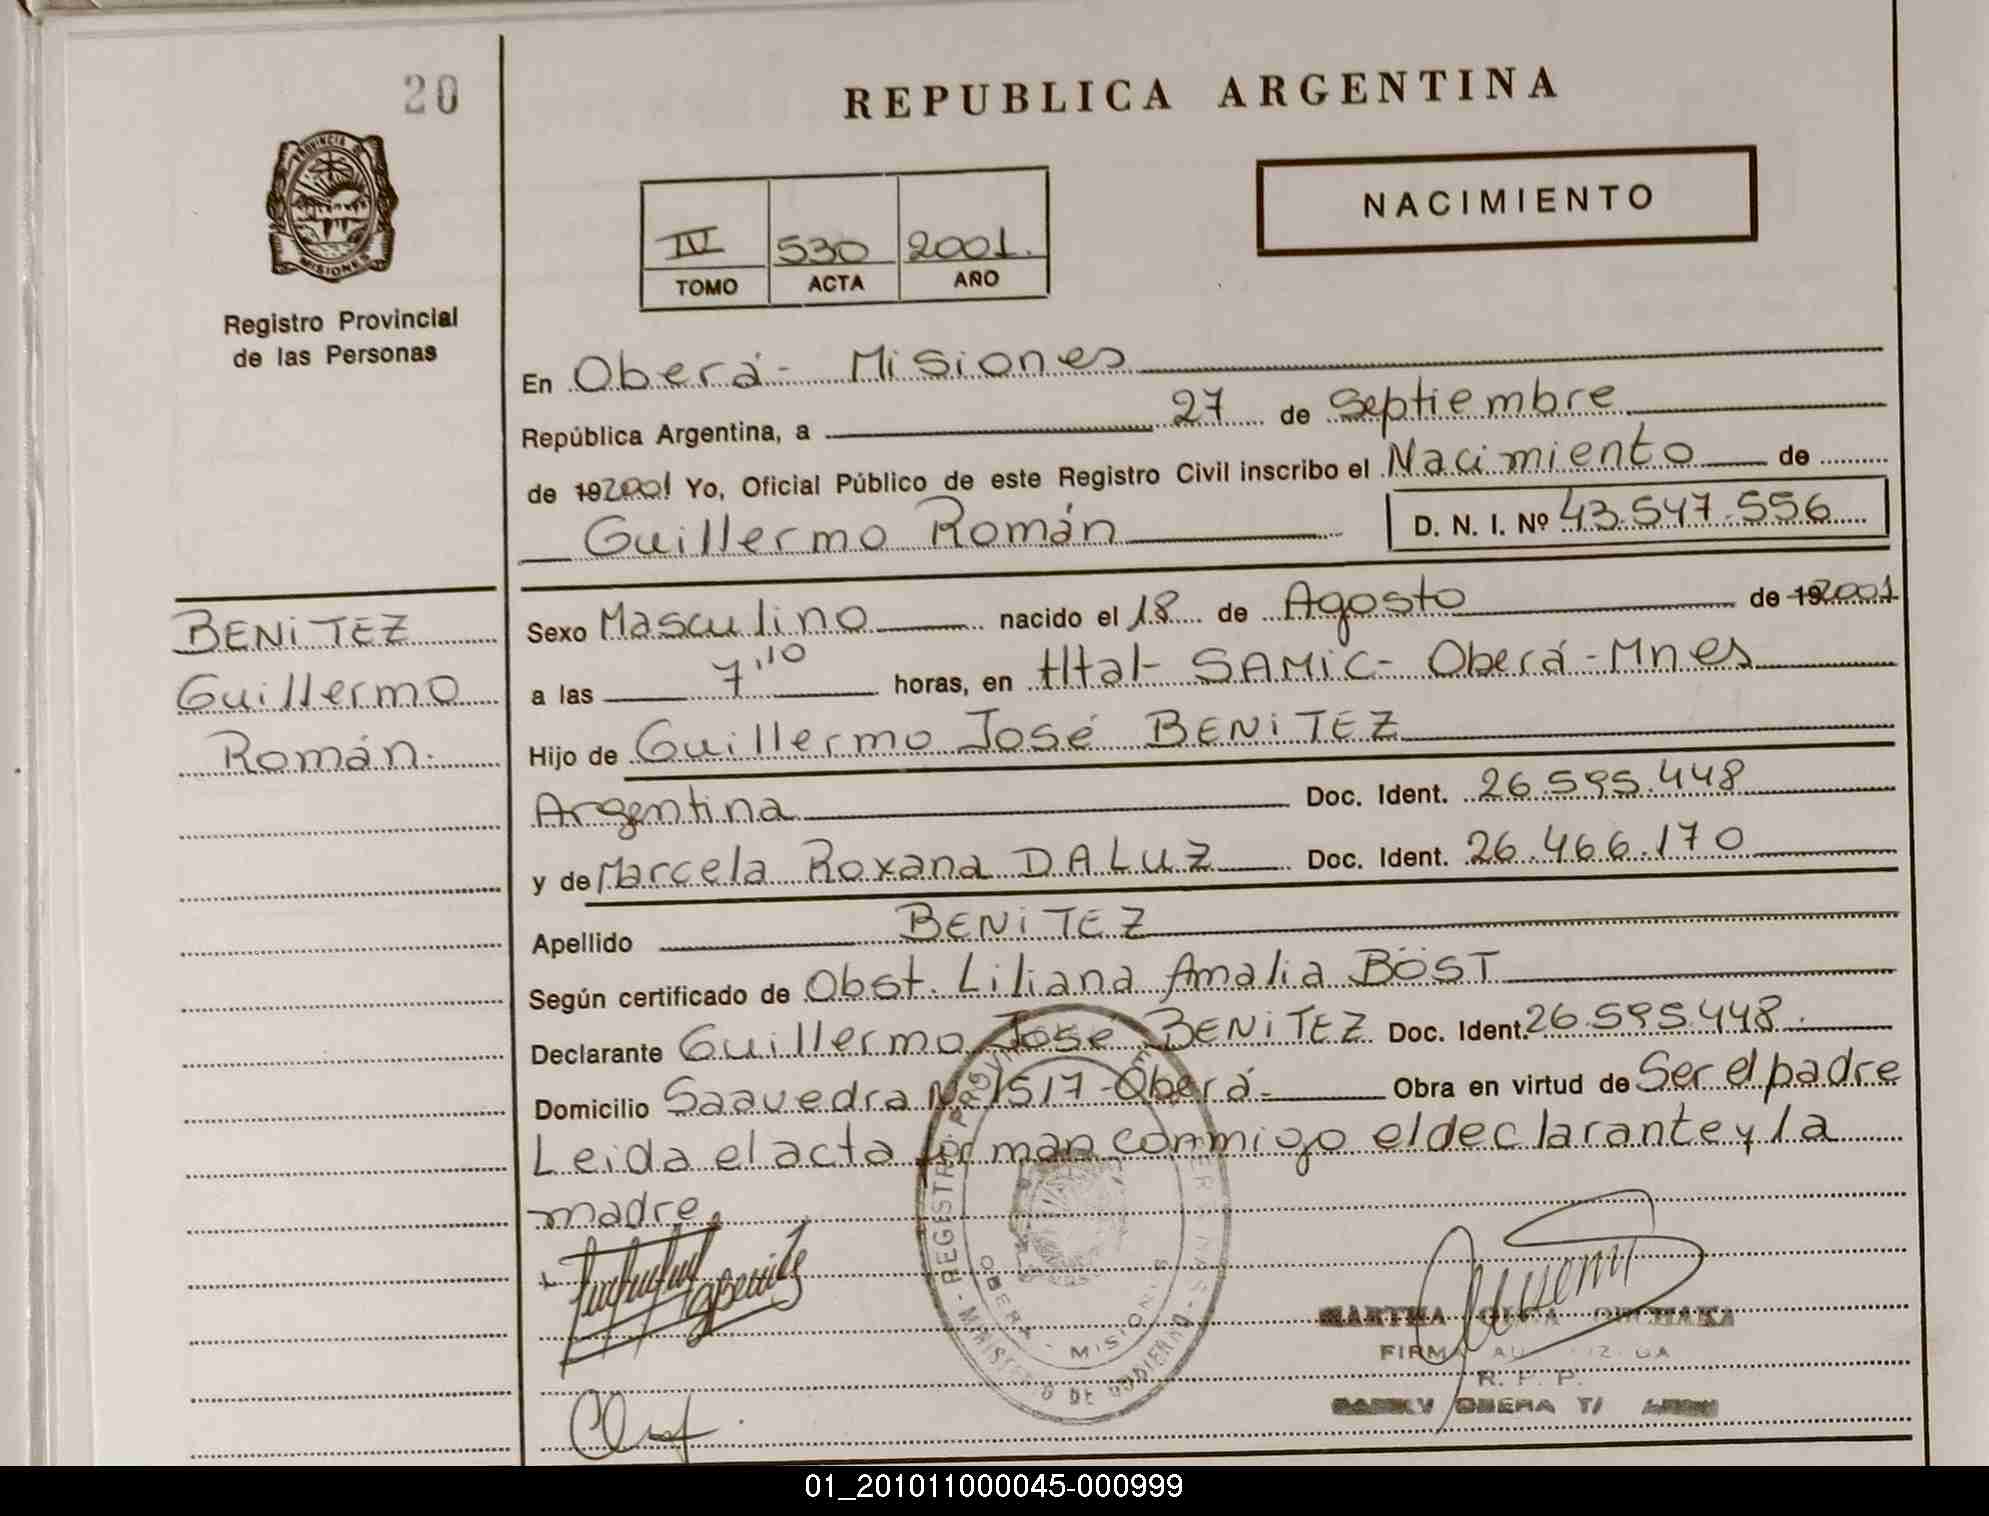 20
REPUBLICA ARGENTINA
PROVINCIA DE
MISIONES
Registro Provincial
de las Personas
NACIMIENTO
IV 530 2001.
TOMO ACTA AÑO
En Oberá - Misiones
República Argentina, a 27 de Septiembre
de 192001 Yo, Oficial Público de este Registro Civil inscribo el Nacimiento de
Guillermo Román D. N. I. Nº 43.547.556
BENiTEZ
Guillermo
Román.
Sexo Masculino nacido el 18 de Agosto de 192001
a las 7'10 horas, en Htal- SAMiC- Oberá - Mnes
Hijo de Guillermo José BENiTEZ
Argentina Doc. Ident. 26.595.448
y de Marcela Roxana DALUZ Doc. Ident. 26.466.170
Apellido BENiTEZ
Según certificado de Obst. Liliana Amalia BÖST
Declarante Guillermo José BENiTEZ Doc. Ident. 26.595.448.
Domicilio Saavedra Nº 1517 - Oberá - Obra en virtud de Ser el padre
Leida el acta firman conmigo el declarante y la
madre
MARTHA OLGA
FIRMA AUTORIZADA
R. P. P.
OBERA
MINISTERIO DE GOBIERNO
MISIONES
01_201011000045-000999